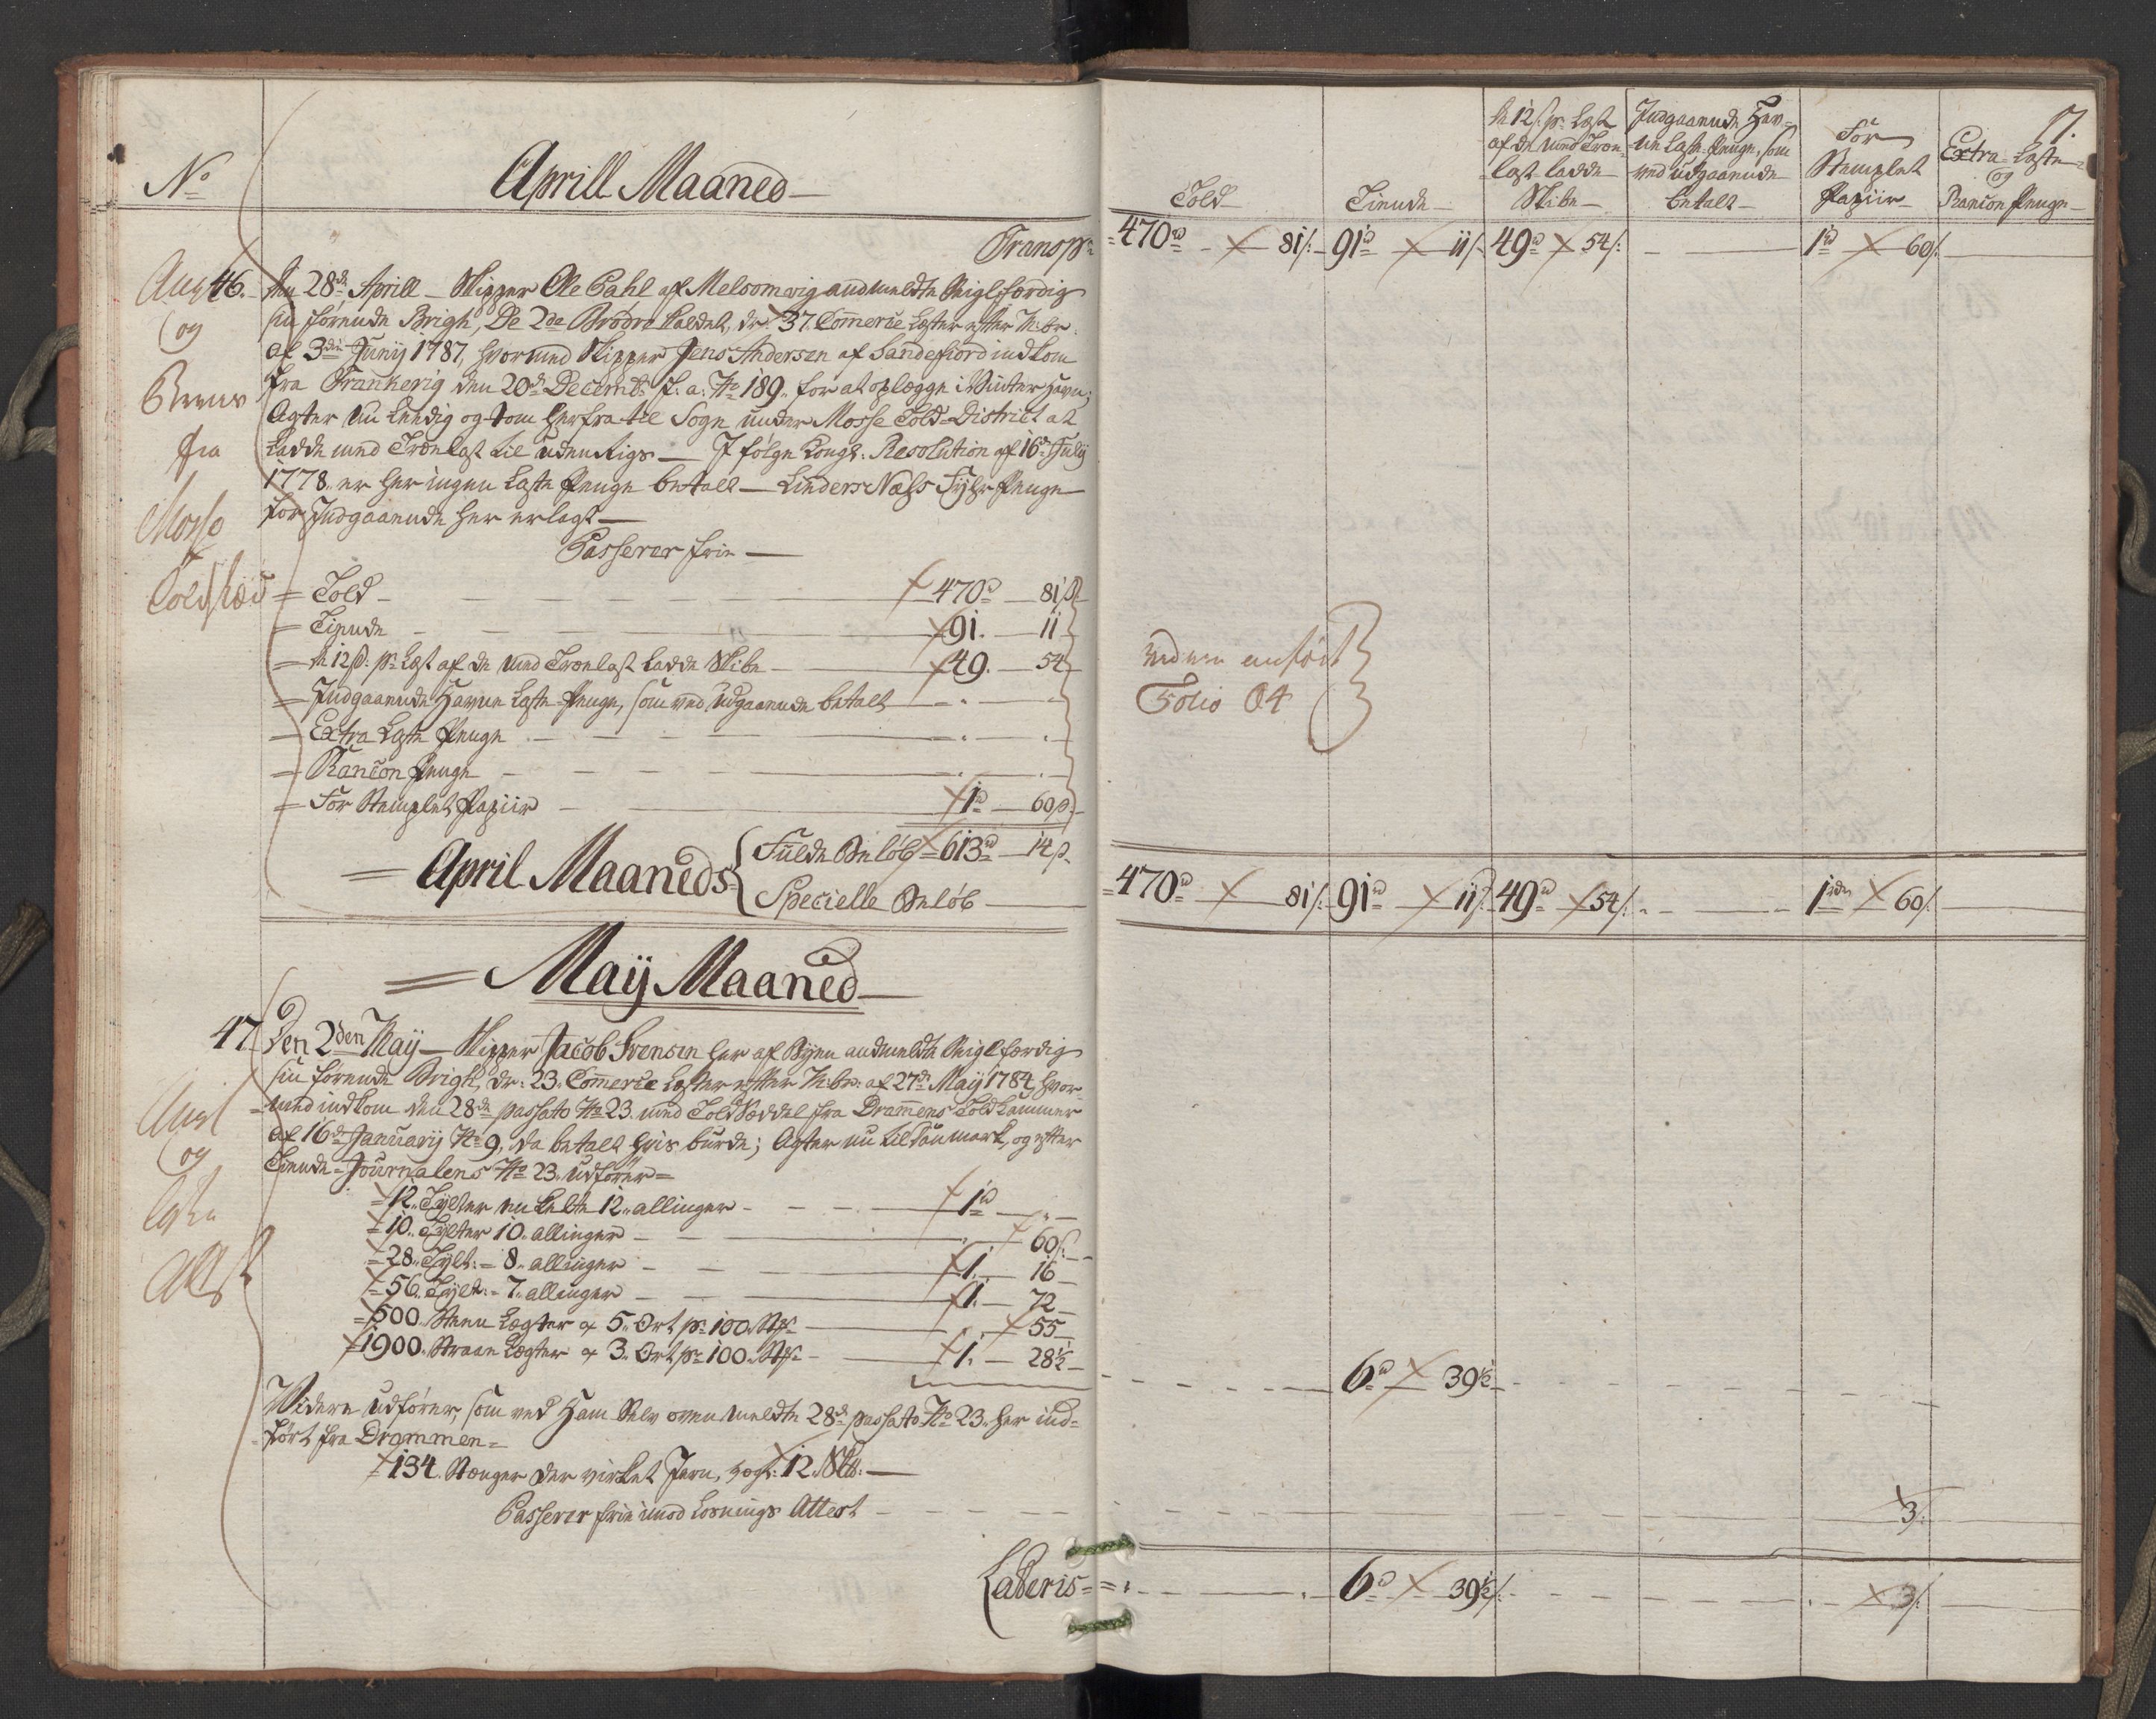 No
Aprill Maaned
Transpr
46. Den 28de Aprill – Skipper Ole Dahl af Melsomvig andmeldte Seiglfærdig
sin førende Brigh, De 2de Brødre kaldet, dr. 37. Commerce Læster efter M:br.
af 3die Junij 1787, hvormed Skipper Jens Andersen af Sandefiord indkom
fra Frankerig den 20de Decembr f. a. No 189. for at oplægge i Winter Havn;
Agter nu Leedig og tom herfra til Sogn under Mosse Told-District at
Ladde med Trælast til uden Rigs – I følge Kongl. Resolution af 16de Julij
1778. er her ingen Laste Penge betalt – Linders Næss Fyhr Penge
for Indgaaende her erlagt –
Passerer frie –
og
Breve
fra
Mosse
Toldsted
= Told – 470rd – 81s
= Tiende – 91. – 11
= de 12s. pr Læst af de med Trælast Ladde Skibe – 49. – 54
= Indgaaende Havne Laste Penge, som ved Udgaaende betalt – " – "
= Extra Laste Penge – " – "
= Rancon Penge – " – "
= For Stemplet Papiir – 1rd – 60s.
= April Maaneds { Fulde Beløb = 613rd – 14s.
Specielle Beløb –
= Maij Maaned –
47. Den 2den Maij – Skipper Jacob Svensen her af Byen andmeldte Seiglfærdig
sin førende Brigh, dr: 23. Commerce Læster efter M:br: af 27de Maij 1784, hvor-
=med indkom den 28de passato No 23. med Told Seddel fra Drammens Told Kammer
af 16de Januarij No 9, da betalt hvis burde; Agter nu til Danmark, og efter
Tiende-Journalens No 23. udfører =
= 12. Tylter enkelte 12. allinger – 1rd – " –
= 10. Tylter 10. allinger – " – 60s.
= 28. Tylt: – 8. allinger – 1. – 16
= 56. Tylt: – 7. allinger – 1. – 72
= 500. Steen Lægter a 5. Ort pr 100. Stk – " – 55
= 1900. Straae Lægter a 3. Ort pr 100. Stk – 1. – 28½
Widere udfører, som ved Ham Selv ovenmeldte 28de passato No 23. her ind-
=ført fra Drammen =
= 134. Stænger der virket Jern, vog: 12. Skb. –
Passerer frie imod Losnings Attest –
og
Attest
Lateris =
7.
Told
Tiende
de 12s. pr Læst af de med Træe-last ladde Skibe
Indgaaende Hav-ne Laste-Penge, som ved udgaaende betalt
For Stemplet Papiir
Extra-Laste og Rancon Penge
470rd – 81s. 91rd – 11s. 49rd – 54s. – 1rd – 60s.
Folio 64
470rd – 81s. 91rd – 11s. 49rd – 54s. – 1rdr – 60s.
6rd – 39½
3.
6rd – 39½s. – 3s.